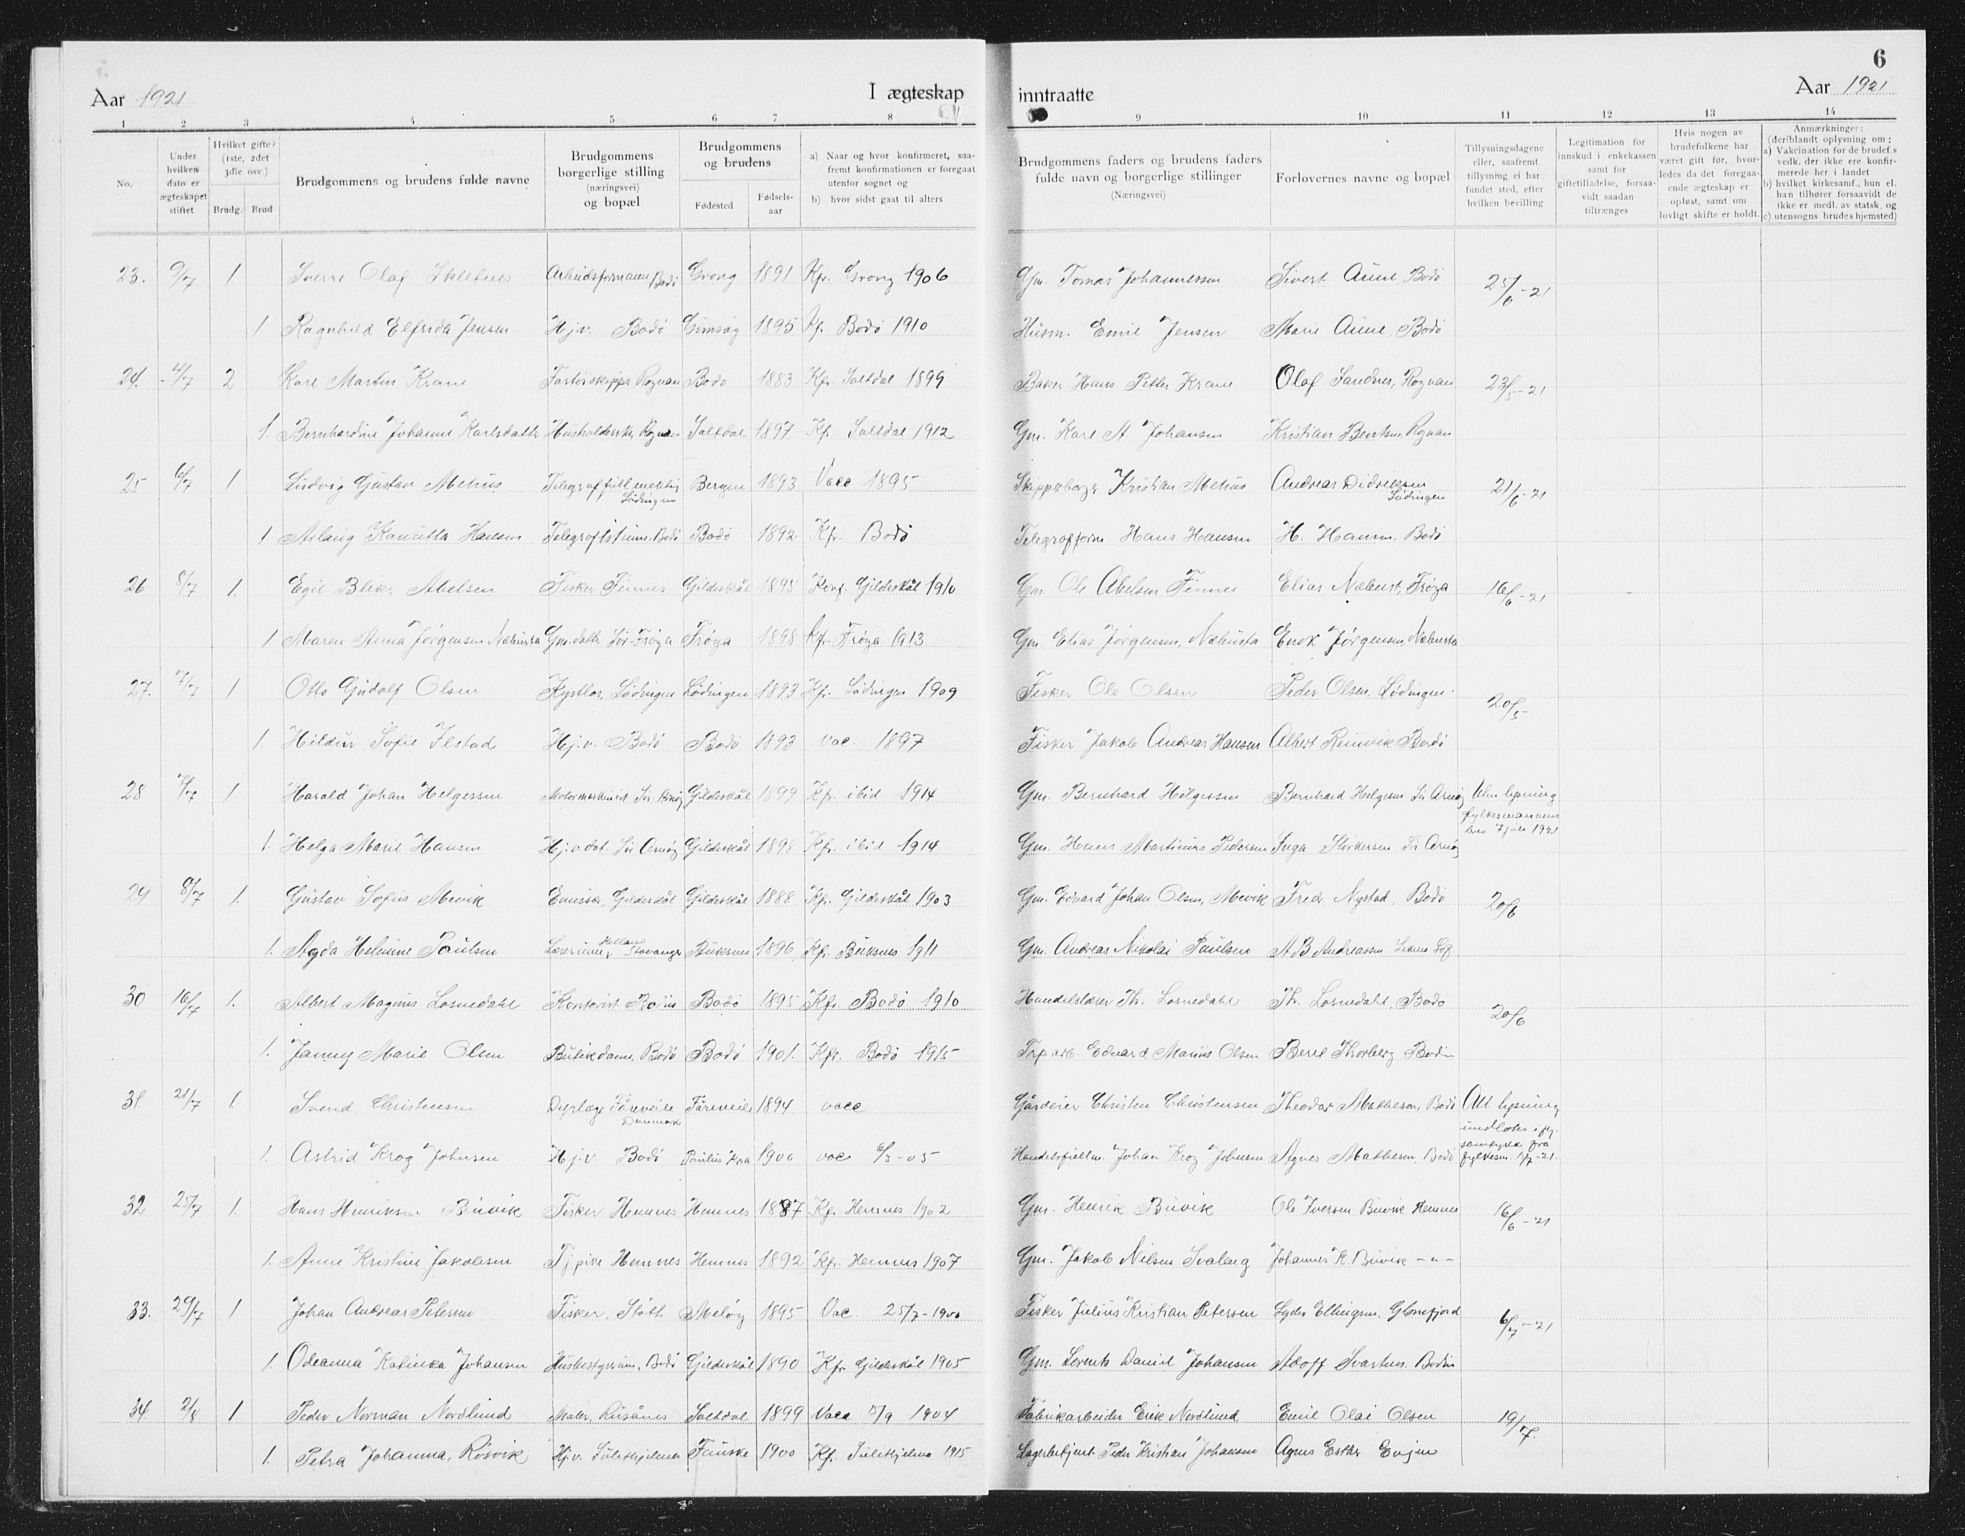 6
Aar 1921 I ægteskap inntraatte Aar 1921
1 2 3 4 5 6 7 8 9 10 11 12 13 14
No.
Under hvilken dato er ægteskapet stiftet
Hvilket gifte? (1ste, 2det 3die osv.)
Brudg. Brud
Brudgommens og brudens fulde navne
Brudgommens borgerlige stilling (næringsvei) og bopæl
Brudgommens og brudens
Fødested Fødsels-aar
a) Naar og hvor konfirmeret, saa-fremt konfirmationen er foregaat utenfor sognet og
b) hvor sidst gaat til alters
Brudgommens faders og brudens faders fulde navn og borgerlige stillinger (Næringsvei)
Forlovernes navne og bopæl
Tillysningsdagene eller, saafremt tillysning ei har fundet sted, efter hvilken bevilling
Legitimation for innskud i enkekassen samt for giftetilladelse, forsaa-vidt saadan tiltrænges
Hvis nogen av brudefolkene har været gift før, hvor-ledes da det foregaa-ende ægteskap er opløst, samt om lovligt skifte er holdt.
Anmærkninger: (deriblandt oplysning om: a) Vakcination for de brudef.s vedk. der ikke ere konfir-merede her i landet b) hvilket kirkesamf., hun el. han tilhører forsaavidt de ikke er medl. av statsk. og c) utensogns brudes hjemsted)
23. 9/7 1 Sverre Olaf Arbeidsformann Bodö Grong 1891 Kf. Grong 1906 Gm. Tomas Johannessen Sivert Aune Bodö 25/6-21
1 Ragnhild Elfrida Jensen Hj.v. Bodö Gimsøy 1895 Kf. Bodö 1910 Husm. Emil Jensen Marie Aune, Bodö
24. 4/7 2 Kare Martin Krane Rognan Bodö 1883 Kf. Saltdal 1899 Baker Hans Petter Krane Olaf Sandnes, Rognan 23/5-21
1. Bernhardine Johanne Karlsdatter Rognan Saltdal 1897 Kf. Saltdal 1912 Gm. Karl A. Johansen Kristian Rognan
25 6/7 1 Ludvig Gustav Mehus Lødingen Bergen 1893 Vacc 1895 Kristian Mehus Andreas Didriksen Lødingen 21/6-21
1 Aslaug Hansen Bodö Bodö 1892 Kfr. Bodö Hans Hansen H. Hansen, Bodö
26 8/7 1. Egil Blikr Abelsen Fisker Finnes Gildeskål 1895 Konf. Gildeskål 1910 Gm. Ole Abelsen Finnes Elias Frøya 16/6-21
1 Maren Anna Jørgensen Gm.datter Sör-Frøya Frøya 1898 Kfr. Frøya 1913 Gm. Elias Jørgensen, Enok Jørgensen,
27. 7/7 1 Otto Gudolf Olsen Lødingen Lødingen 1893 Kfr. Lødingen 1909 Fisker Ole Olsen Peder Olsen, Lødingen 20/5
1. Hildur Sofie Ilstad Hj.v. Bodö Bodö 1893 vac. 1897 Fisker Jakob Andreas Hansen Albert Reinvik Bodö
28 1 Harald Johan Helgessen Motormaskinist Sör Arnöy Gildeskål 1899 Kfr. ibid. 1914 Gm. Bernhard Helgessen Bernhard Helgesen Sör Arnöy Uten lysning fylkesmannens brev 7 juli 1921
1. Helga Marie Hansen Sör Arnöy Gildeskål 1898 Kfr. ibid 1914 Gm. Hans Martinus Pedersen Inga Störkersen Sör Arnöy
29 8/7 1. Gustav Sofus Mevik Emissær, Gildeskål Gildeskål 1888 Kf. Gildeskål 1903 Gm. Edvard Johan Olsen, Mevik Fredr. Nystad, Bodö 20/6
1. Agda Helmine Paulsen Lærerinne Stavanger Buksnes 1896 Kfr. Buksnes 1911 Gm. Andreas Nikolai Paulsen A.B Andreassen
30 16/7 1. Albert Magnus Losnedahl Kontorist Bodin Bodö 1895 Kfr. Bodö 1910 Th. Losnedahl Th. Losnedahl, Bodö 20/6
1. Jenny Marie Olsen Butikdame, Bodö Bodö 1901. Kfr. Bodö 1915 Edvard Marius Olsen Beret Thorberg Bodin
31 21/7 1. Svend Christensen Dyrlæge Fåreveile Danmark Fåreveile 1894 vacc Gårdeier Christen Christensen Theodor Mathesen, Bodö Alt lysning undlates fylkesm. 1/7-21.
1. Astrid Krog Johnsen Hj.v. Bodö 1900 vac 6/3-05 Johan Krog Johnsen Agnes Mathesen, Bodö
32 25/7 1. Hans Henriksen Buvik Fisker Hemnes Hemnes 1887 Kf. Hemnes 1902 Gm. Henrik Buvik Ole Iversen Buvik Hemnes 16/6-21
1. Anne Kristine Jakobsen Tj.pike Hemnes Hemnes 1892 Kfr. Hemnes 1907 Gm. Jakob Nilsen Svaleng Johannes K. Buvik -"-
33. 29/7 1 Johan Andreas Petersen Fisker, Stött Meløy 1895 Vac. 25/7-1900 Fisker Julius Kristian Petersen Lyder Ellingsen, Glomfjord 6/7-21
1. Odeanna Katinka Johansen Husbestyrerinne, Bodö Gildeskål 1890 Kfr. Gildeskål 1905 Gm. Lorents Daniel Johansen Adolf Svartnes, Bodin
34 2/8 1 Peder Norman Nordlund Maler, Rusånes Saltdal 1899 Vacc 5/9 1904 Fabrikarbeider Erik Nordlund Emil Olai Olsen 19/7.
1. Petra Johanna, Røsvik Hj.v. Sulitjelma Fauske 1900 Kf. Sulitjelma 1915 Lagerbetjent Peder Kristian Johansen Agnes Ester Evjen